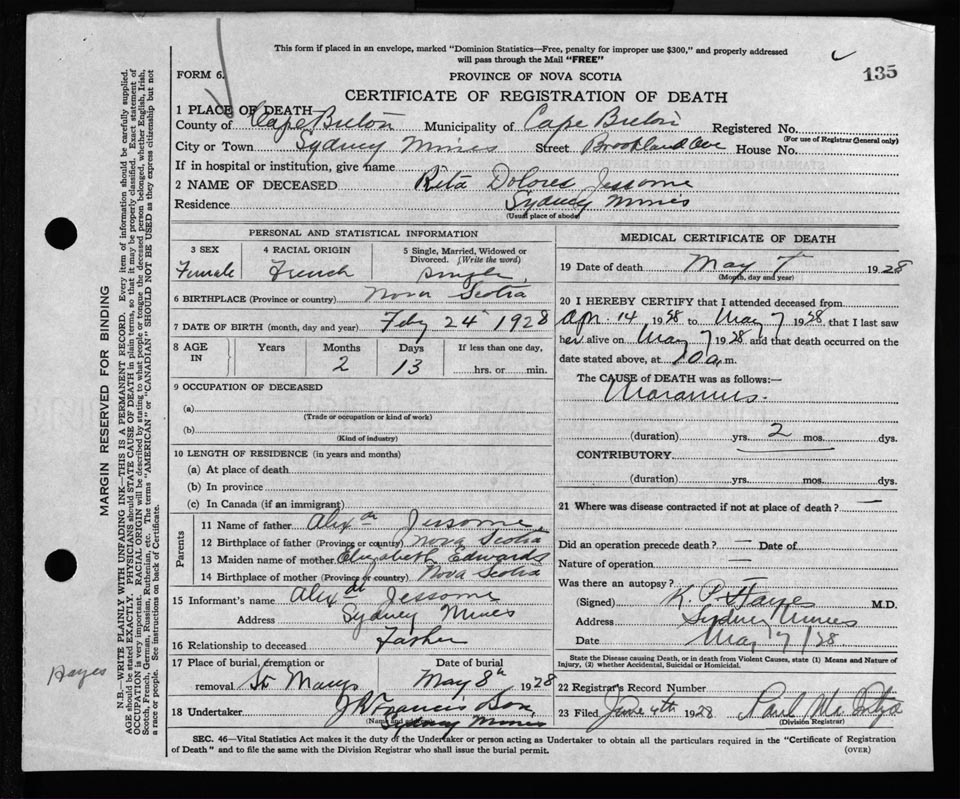 This form if placed in an envelope, marked "Dominion Statistics—Free, penalty for improper use $300," and properly addressed
will pass through the Mail "FREE"
135
FORM 6.
PROVINCE OF NOVA SCOTIA
CERTIFICATE OF REGISTRATION OF DEATH
1 PLACE OF DEATH
County of Cape Breton Municipality of Cape Breton Registered No.
(For use of Registrar General only)
City or Town Sydney Mines Street Brookland Ave House No.
If in hospital or institution, give name
2 NAME OF DECEASED Rita Dolores Jessome
Residence Sydney Mines
(Usual place of abode)
PERSONAL AND STATISTICAL INFORMATION
3 SEX 4 RACIAL ORIGIN 5 Single, Married, Widowed or Divorced. (Write the word)
Female French single
6 BIRTHPLACE (Province or country) Nova Scotia
7 DATE OF BIRTH (month, day and year) Feby 24 1928
8 AGE IN Years Months Days If less than one day,
2 13 hrs. or min.
9 OCCUPATION OF DECEASED
(a)
(Trade or occupation or kind of work)
(b)
(Kind of industry)
10 LENGTH OF RESIDENCE (in years and months)
(a) At place of death
(b) In province
(c) In Canada (if an immigrant)
Parents
11 Name of father Alexdr Jessome
12 Birthplace of father (Province or country) Nova Scotia
13 Maiden name of mother Elizabeth Edwards
14 Birthplace of mother (Province or country) Nova Scotia
15 Informant's name Alexdr Jessome
Address Sydney Mines
16 Relationship to deceased father
17 Place of burial, cremation or removal St Marys
Date of burial May 8th 1928
18 Undertaker J R Francis Box
(Name and address)
Sydney Mines
MEDICAL CERTIFICATE OF DEATH
19 Date of death May 7 1928
(Month, day and year)
20 I HEREBY CERTIFY that I attended deceased from
Apr. 14 1928 to May 7 1928 that I last saw
her alive on May 7 1928 and that death occurred on the
date stated above, at 10 a.m.
The CAUSE of DEATH was as follows:—
Marasmus.
(duration) yrs. 2 mos. dys.
CONTRIBUTORY
(duration) yrs. mos. dys.
21 Where was disease contracted if not at place of death? —
Did an operation precede death? — Date of
Nature of operation
Was there an autopsy? —
(Signed) K. P. Hayes M.D.
Address Sydney Mines
Date May 7/28
State the Disease causing Death, or in death from Violent Causes, state (1) Means and Nature of
Injury, (2) whether Accidental, Suicidal or Homicidal.
22 Registrar's Record Number
23 Filed June 4th 1928 Paul
(Division Registrar)
SEC. 46—Vital Statistics Act makes it the duty of the Undertaker or person acting as Undertaker to obtain all the particulars required in the "Certificate of Registration
of Death" and to file the same with the Division Registrar who shall issue the burial permit. (OVER)
MARGIN RESERVED FOR BINDING
N.B.—WRITE PLAINLY WITH UNFADING INK—THIS IS A PERMANENT RECORD. Every item of information should be carefully supplied.
AGE should be stated EXACTLY. PHYSICIANS should STATE CAUSE OF DEATH in plain terms, so that it may be properly classified. Exact statement of
OCCUPATION is very important. RACIAL ORIGIN will be described by stating to what people or tongue the deceased person belonged, whether English, Irish,
Scotch, French, German, Russian, Ruthenian, etc. The terms "AMERICAN" or "CANADIAN" SHOULD NOT BE USED as they express citizenship but not
a race or people. See instructions on back of Certificate.
Hayes